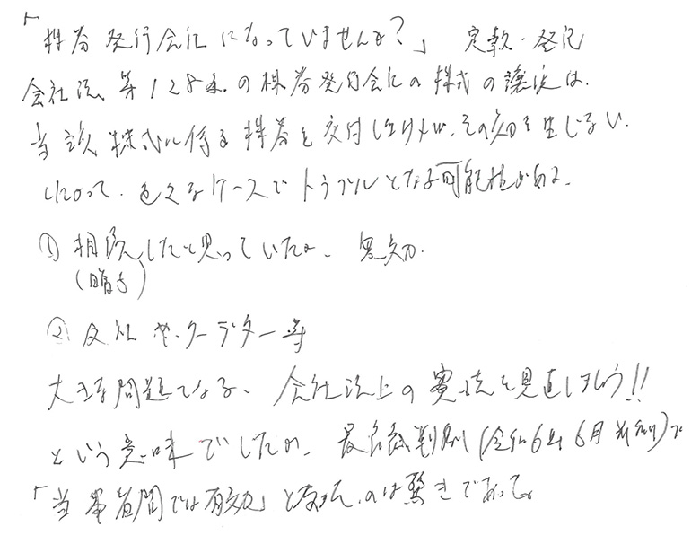 「株券発行会社になっていませんか？」 定款・登記
会社法 第128条の株券発行会社の株式の譲渡は、
当該株式に係る株券を交付しなければ、その効力を生じない。
よって、色々なケースでトラブルとなる可能性がある。
① 相続したと思っていたが、無効。
(贈与)
② 反社 や クーデター等
大きな問題となる、会社法上の 見直しましょう!!
という意味でしたが、最高裁判例(令和6年6月 )で
「当事者間では有効」と のは驚きであった。